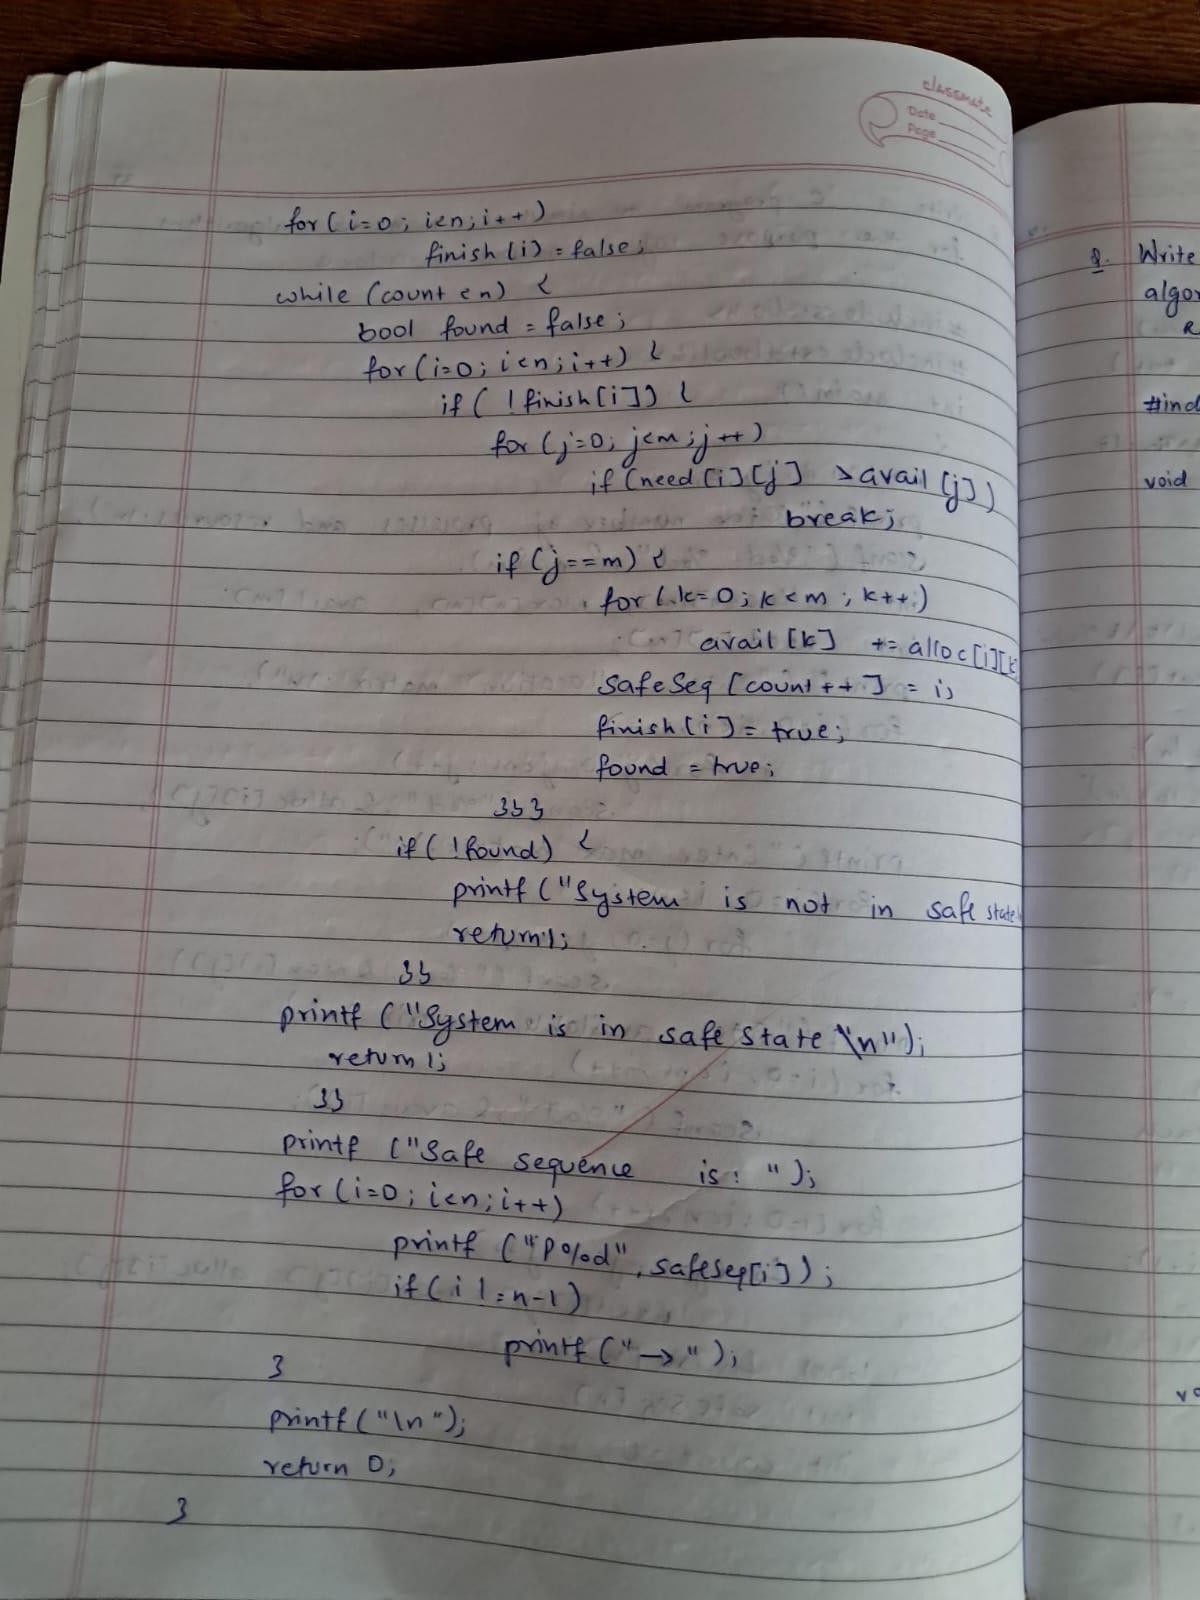 classmate
Date
Page
for (i=0; i<n; i++)
finish (i) = false;
while (count < n) {
bool found = false;
for (i=0; i<n; i++) {
if ( ! finish [i]) {
for (j=0; j<m; j++)
if (need [i] [j] > avail [j])
break;
if (j==m) {
for (k=0; k<m; k++)
avail [k] += alloc [i][k
safeSeq [count++] = i;
finish [i] = true;
found = true;
}}}
if ( !found) {
printf ("System is not in safe state
return 1;
}}
printf ("System is in safe state \n");
return 1;
}}
printf ("Safe sequence is: ");
for (i=0; i<n; i++)
printf ("P%d", safeseq[i]);
if (i != n-1)
printf ("→");
}
printf ("\n");
return 0;
}
Q. Write
algor
#incl
void